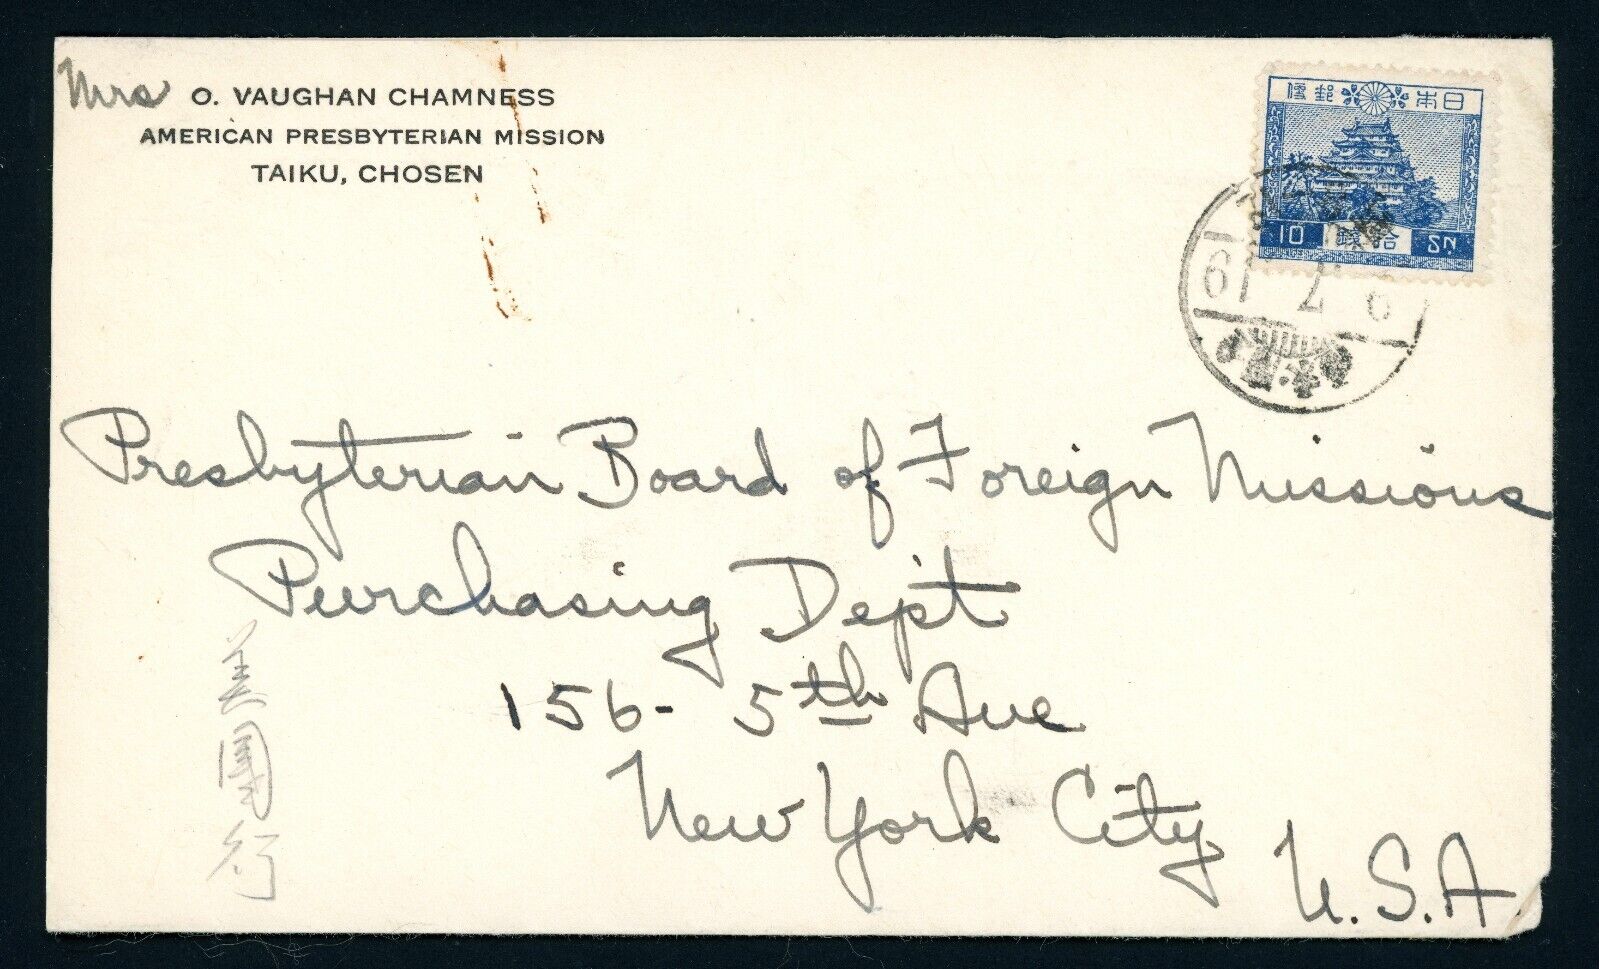 Mrs O. VAUGHAN CHAMNESS
AMERICAN PRESBYTERIAN MISSION
TAIKU, CHOSEN
便郵 本日
10 錢拾 SN.
9 7 19
Presbyterian Board of Foreign Missions
Purchasing Dept
156- 5th Ave
New York City
U.S.A.
美國行